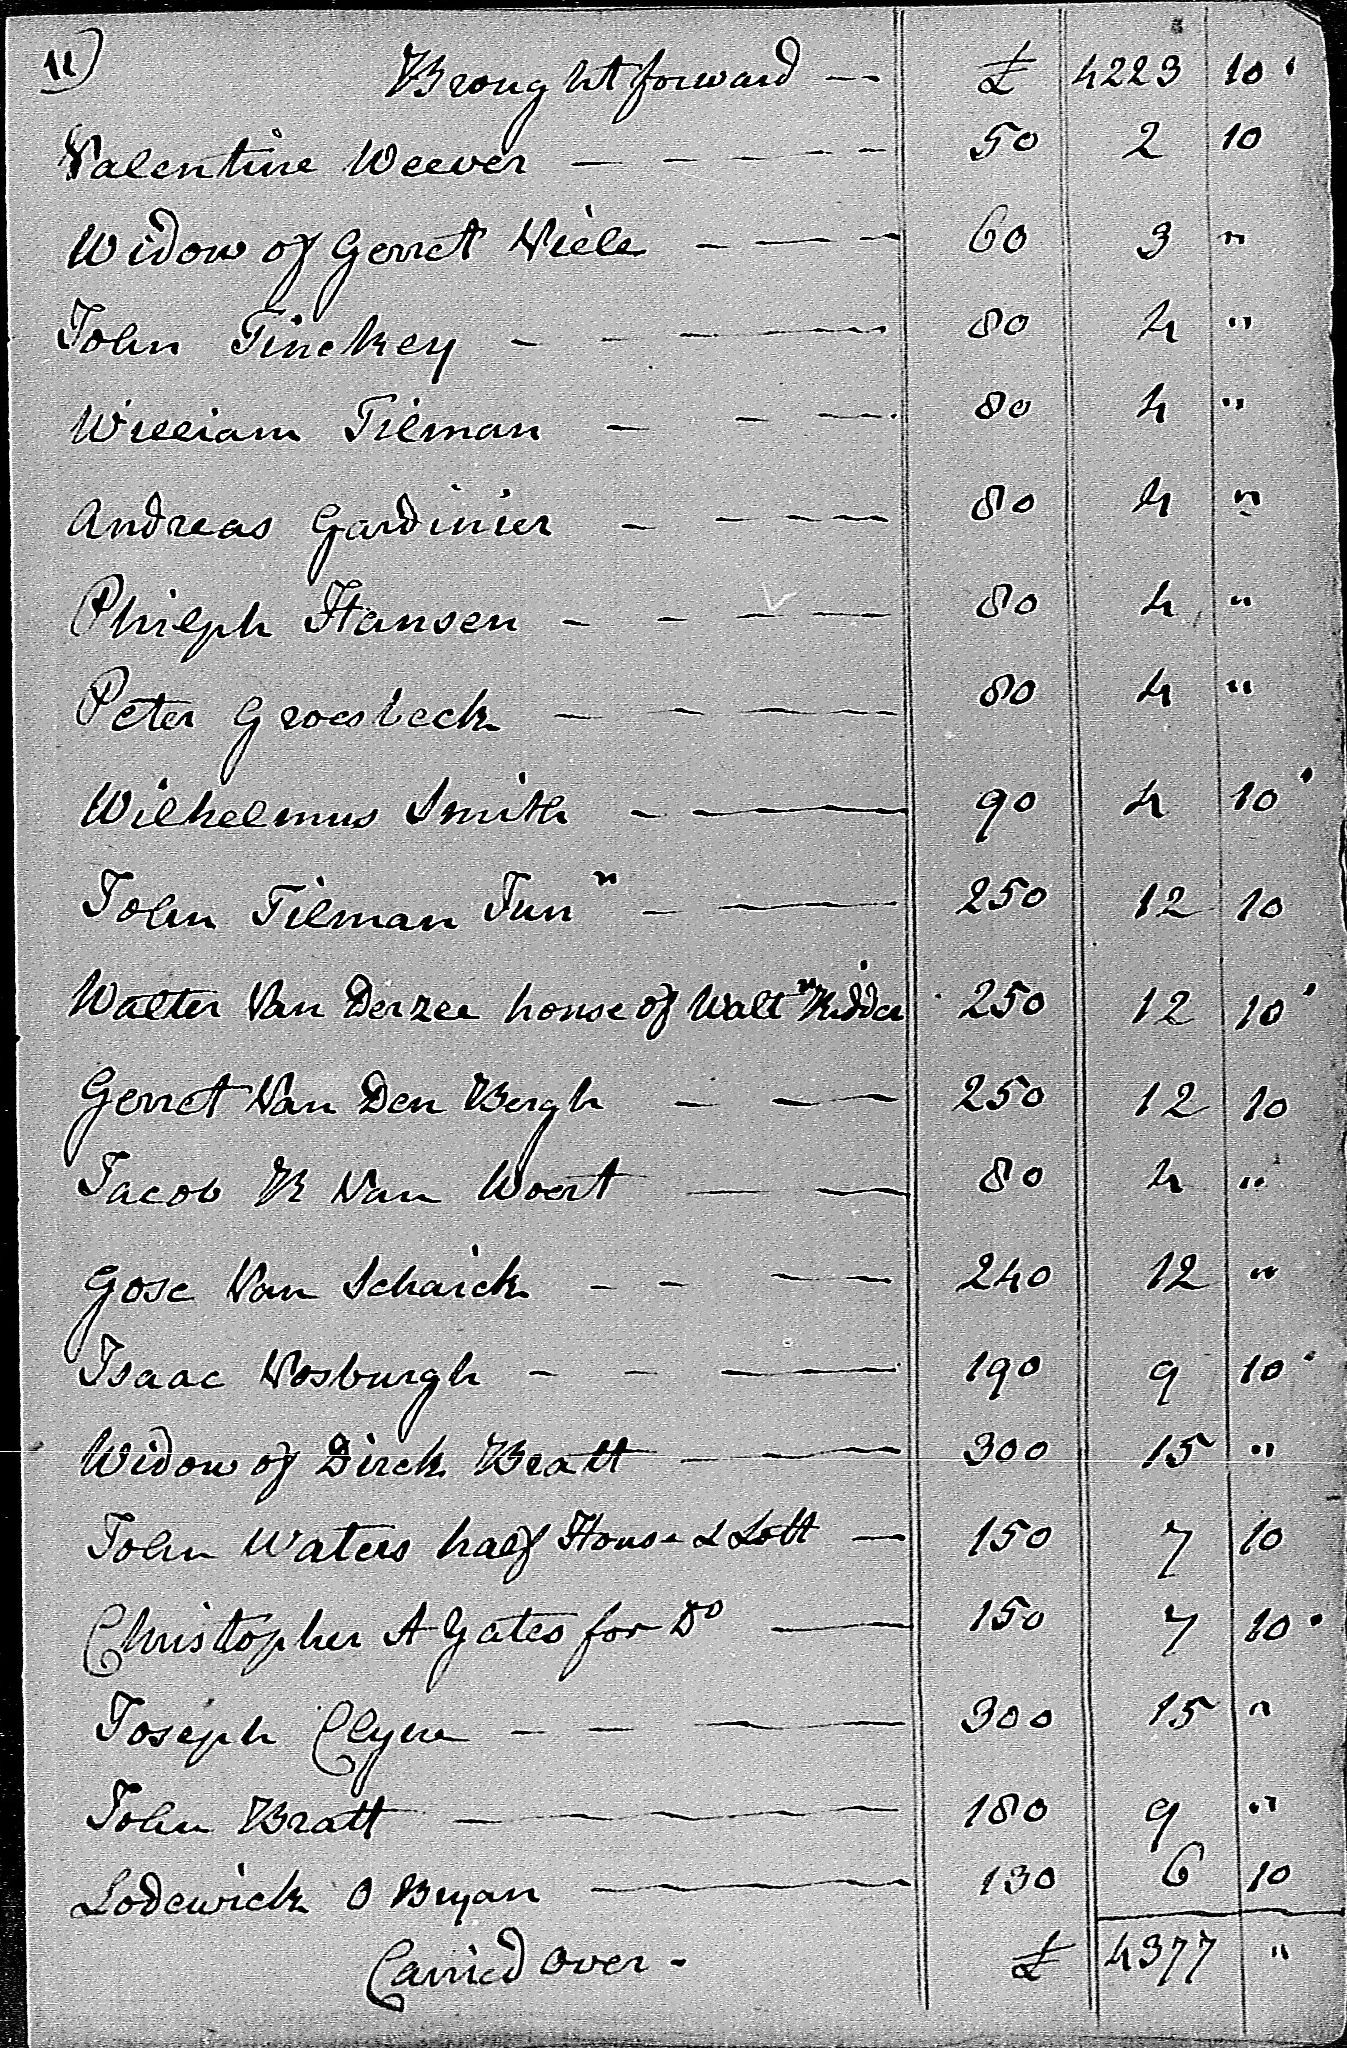 11)
Brought forward -- £ 4223 10
Valentine Weever - - - - 50 2 10
Widow of Gerret Viele - - - 60 3 "
John Tinckey - - - - - 80 4 "
William Tilman - - - - 80 4 "
Andreas Gardinier - - - - 80 4 "
Philiph Hansen - - - - 80 4 "
Peter Groesbeck - - - - 80 4 "
Wilhelmus Smith - - - - 90 4 10
John Tilman Junr - - - 250 12 10
Walter Van Derzee house of Waltr Kidder 250 12 10
Gerret Van Den Bergh - - - 250 12 10
Jacob B Van Woert - - - 80 4 "
Gose Van Schaick - - - - 240 12 "
Isaac Vosburgh - - - - 190 9 10
Widow of Dirck Bratt - - - 300 15 "
John Waters half House & Lott - 150 7 10
Christopher A Yates for Do - - 150 7 10
Joseph Clyne - - - - 300 15 "
John Bratt - - - - 180 9 "
Lodewick O Bryan - - - - 130 6 10
Carried over - £ 4377 "